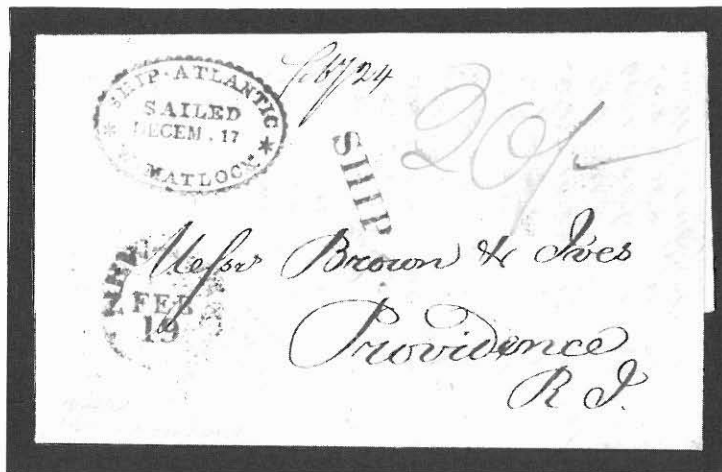 SHIP·ATLANTIC
SAILED
DECEM. 17
MATLOCK
20/-
SHIP
FEB
19
Messrs Brown & Ives
Providence
R I.